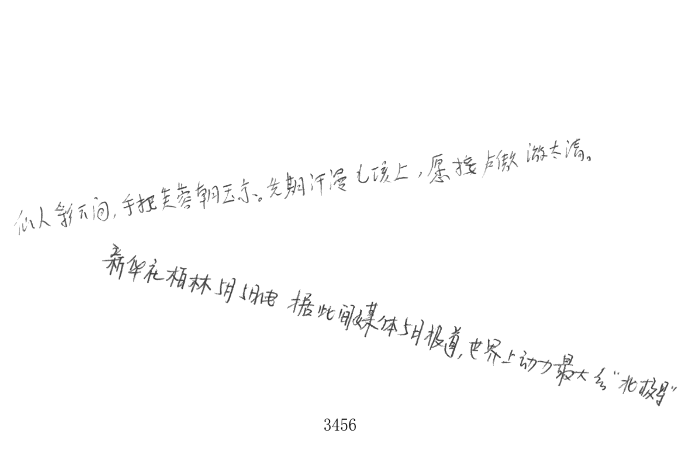 仙人彩云间,手把芙蓉朝玉京。先期汗漫九垓上,愿接卢敖游太清。
新华社柏林5月5日电 据此间媒体5月报道,世界上动力最大的“北极星”
3456